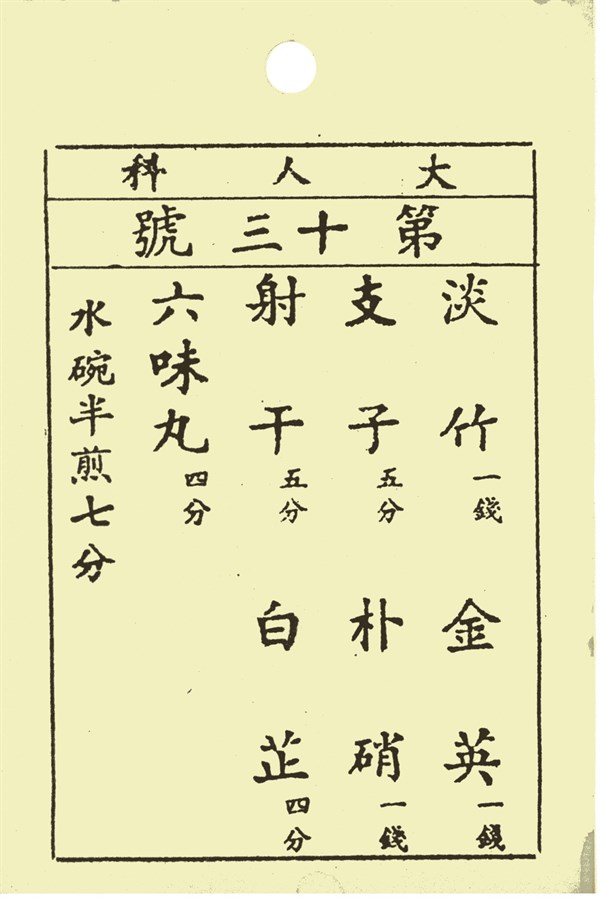 大人科
第十三號
淡竹一錢 金英一錢
支子五分 朴硝一錢
射干五分 白芷四分
六味丸四分
水碗半煎七分